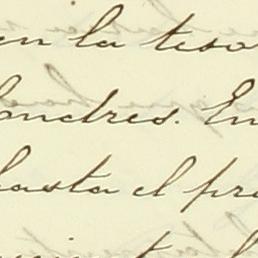 en la teso
ondres. En
hasta el pro